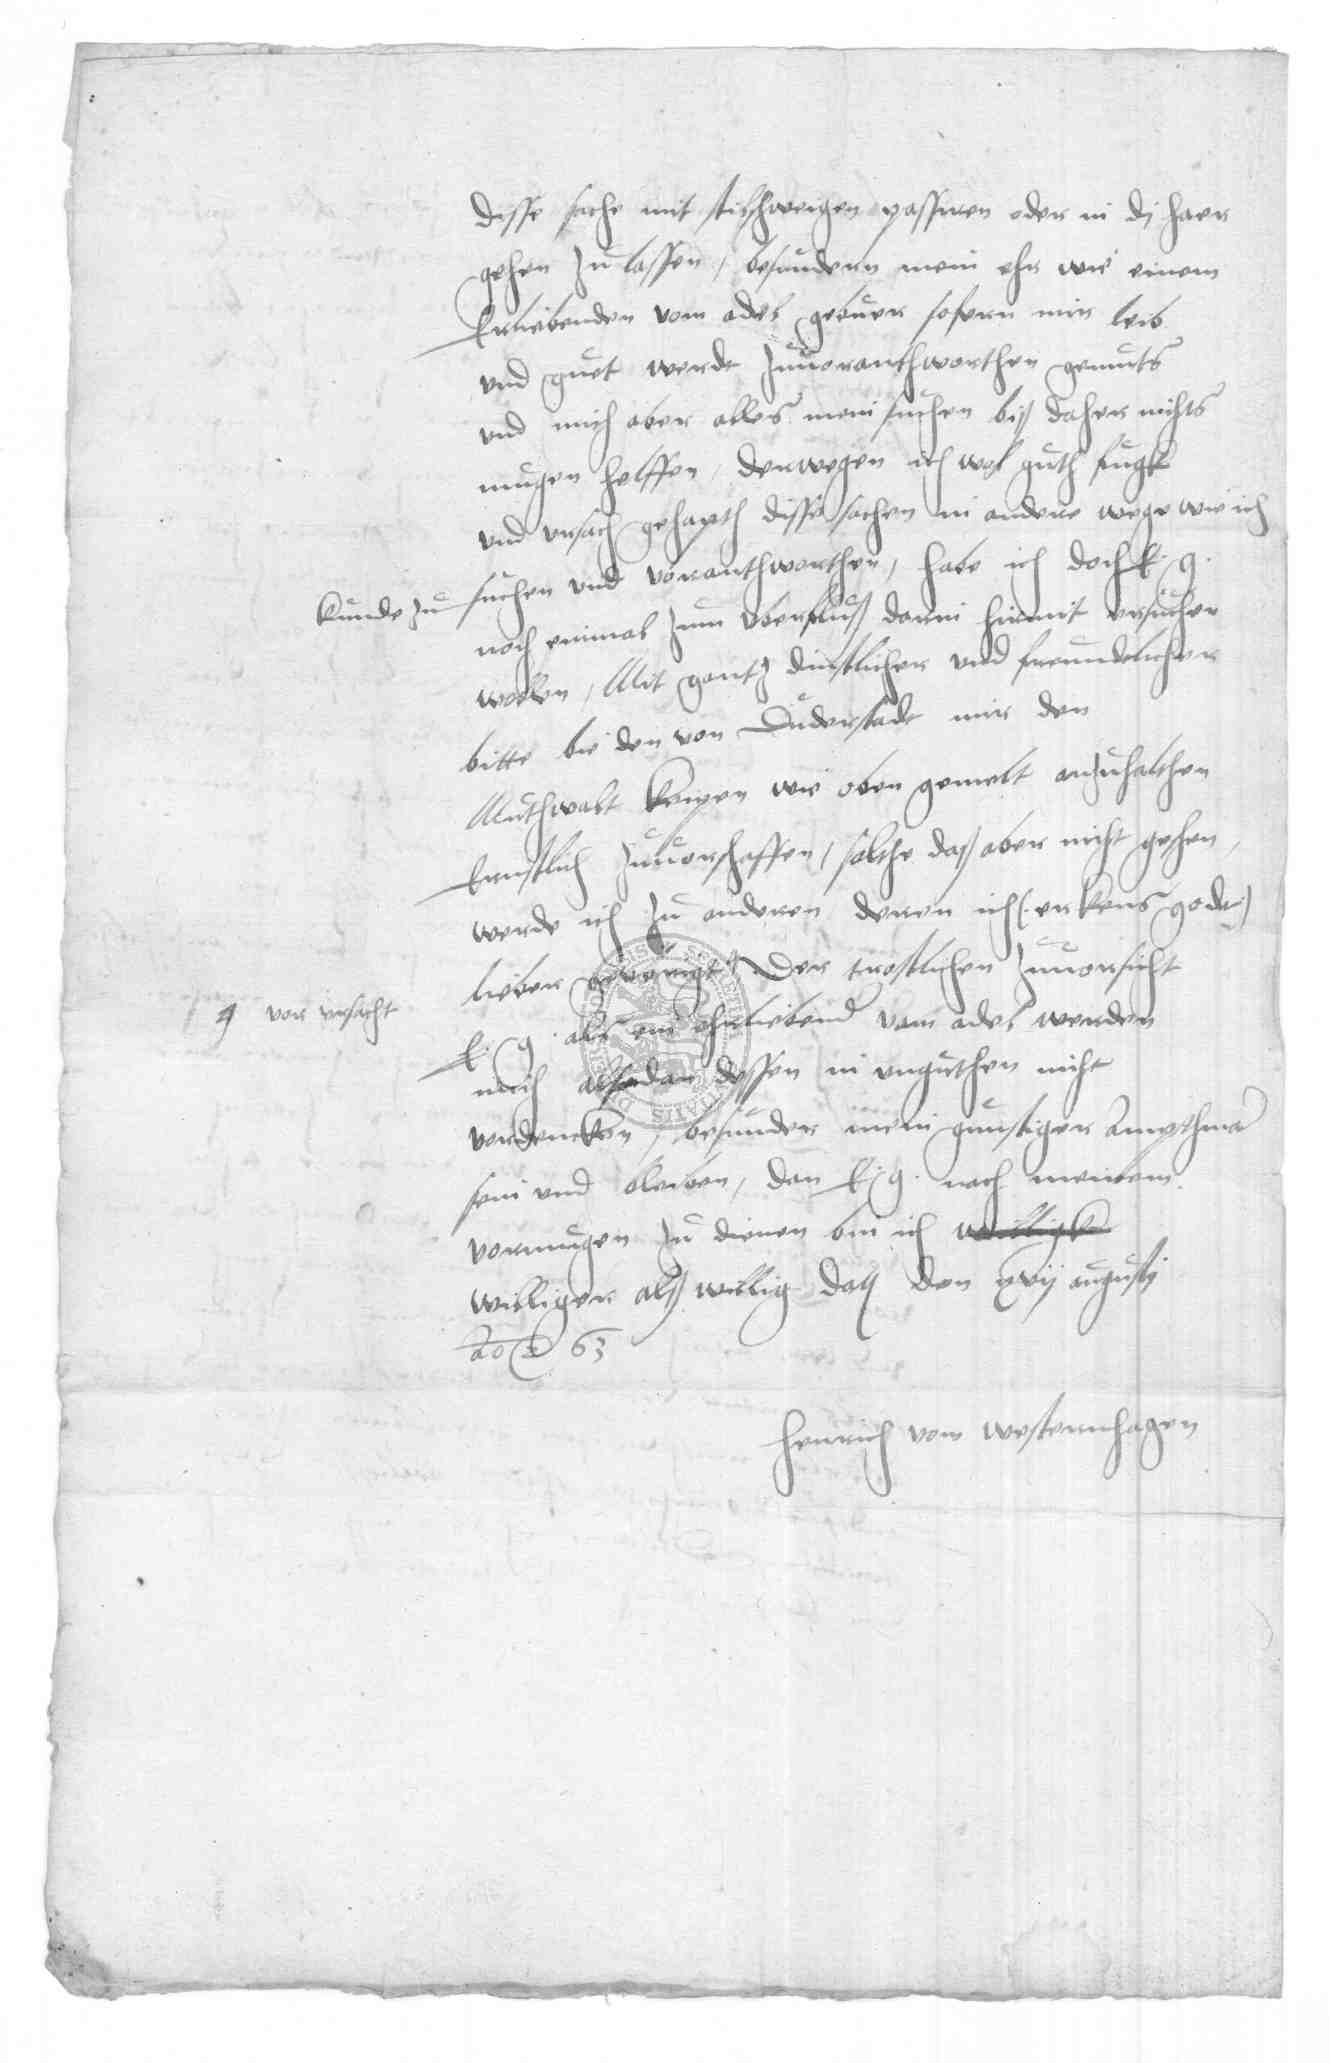 disse sache mit stilschweigen passiren oder in dj haer
gehen zu lassen, besundern mein ehr wie einem
Erliebenden vom adel gebuer sofern mir leib
vnd guet werdt zuuoranthworthen gemuts
vnd mich aber alles mein suchen biß daher nichts
mugen helffen, derwegen ich wol guth fugk
vnd vrsach gehapth disse sachen in andere wege wie ich
kunde zu suchen vnd voranthworthen, habe ich doch E. g.
noch einmal zum vberfluß darin hirmit ersuchen
wollen, Mit gantz dinstlicher vnd freundtlicher
bitte bie den von Duderstadt mir den
Muthwalt keipen wie oben gemelt anzuhalthen
Ernstlich zuuorschaffen, solthe daß aber nicht gehen,
werde ich zu anderen deren ich (: erkens godt :)
lieber vor vrsacht Der trostlichen zuuorsicht
E. g. als ein ehrliebend vam adel werden
mich alsdan dessen in vnguthen nicht
vordencken, besunder mein gunstiger Ampthman
sein vnd bleiben, dan E. g. nach meinem
vormugen zu dienen bin ich
williger alß willig dat den xvij augustj
Ao 63
Henrich vom Westernhagen